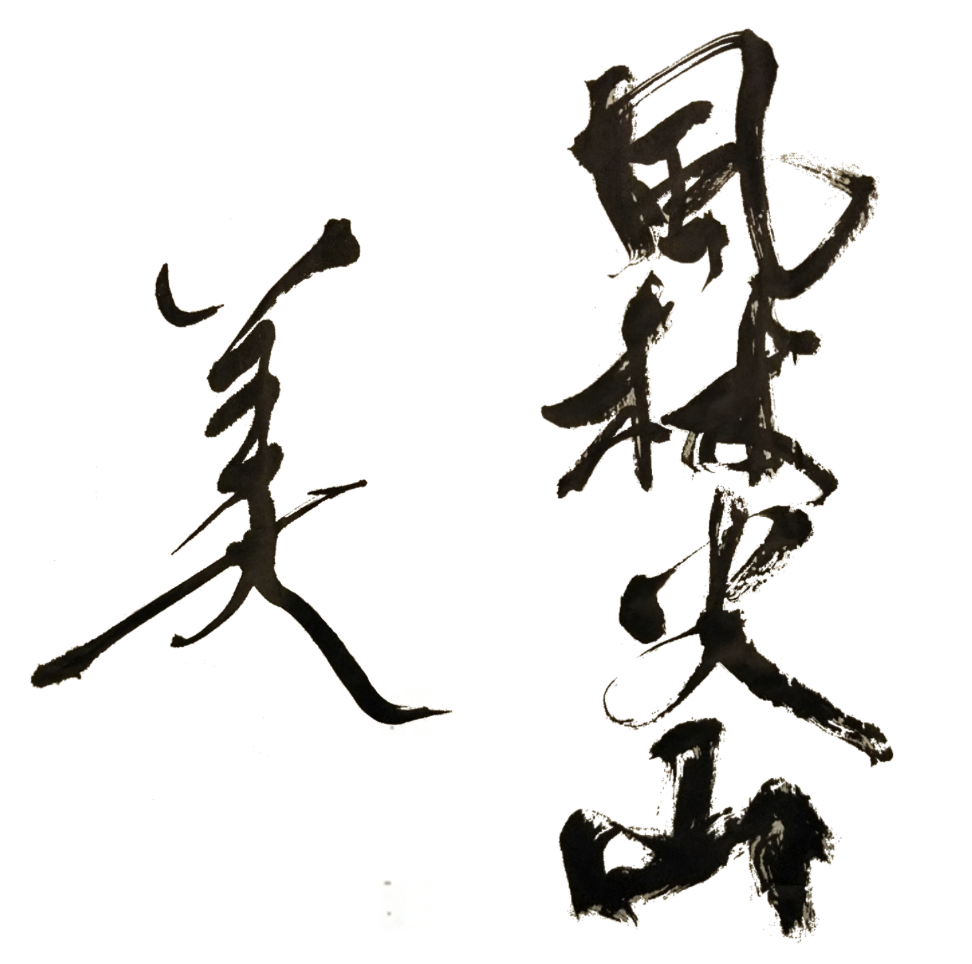 風林火山
美